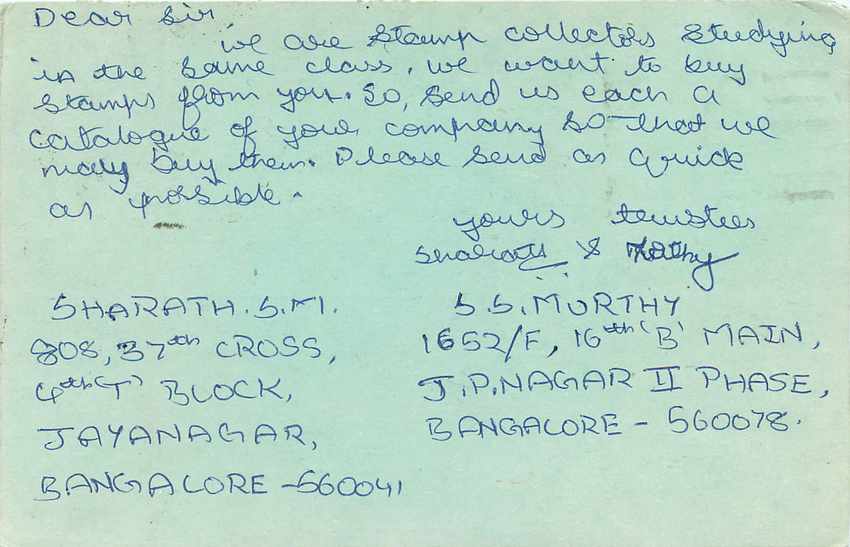 Dear Sir,
we are stamp collectors studying
in the same class. we want to buy
stamps from you. So, send us each a
catalogue of your company so that we
may buy them. Please send as quick
as possible.
yours
Sharath &
SHARATH. S. M.
808, 37th CROSS,
4th 'T' BLOCK,
JAYANAGAR,
BANGALORE -560041
S. S. MURTHY
1652/F, 16th 'B' MAIN,
J. P. NAGAR II PHASE,
BANGALORE - 560078.